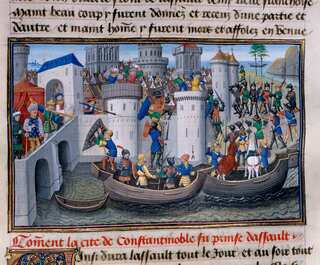 Maint beau coup y furent donnez et receuz dune partie et
dautre et maint home y furent mors et affolez en
Coment la cite de Constantinoble fu prinse dassault
Ainsi dura lassault tout le Jour et au soir tout